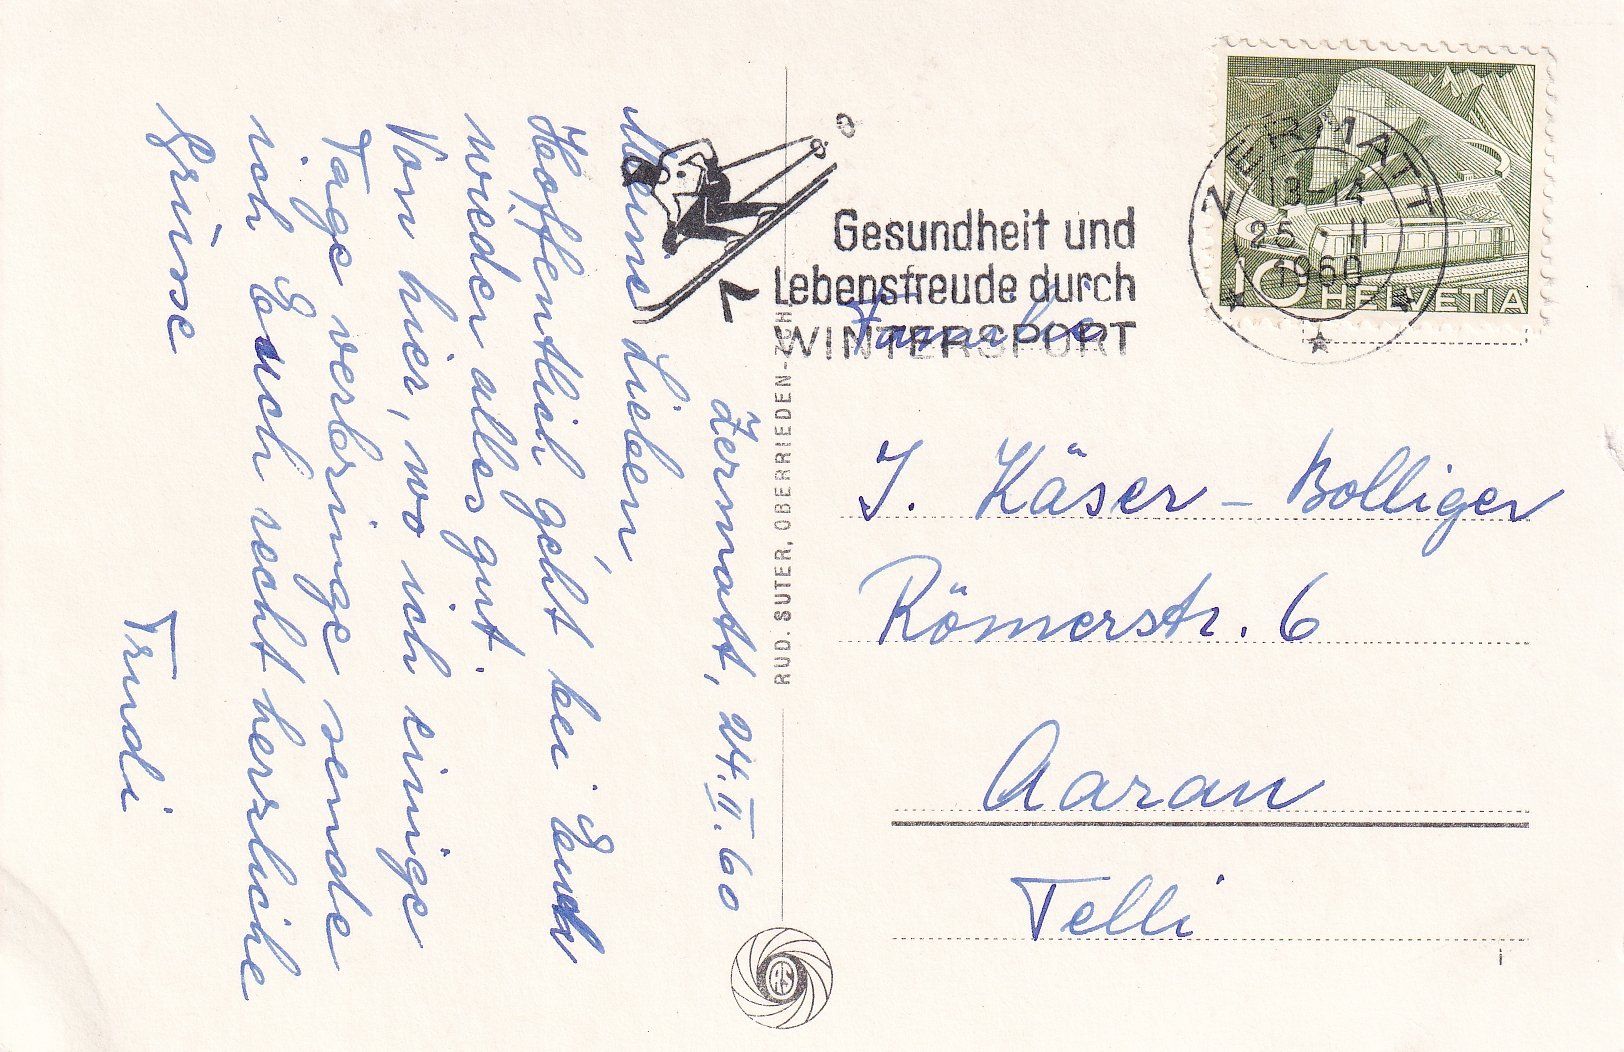 Zermatt, 24.II.60
Meine Lieben,
Hoffentlich geht's bei Euch
wieder alles gut.
Von hier, wo ich einige
Tage verbringe sende
ich Euch recht herzliche
Grüsse
Trudi
RUD. SUTER, OBERRIEDEN-ZCH
RS
Gesundheit und
Lebensfreude durch
WINTERSPORT
ZERMATT
13-14
25.-II
1960
10 HELVETIA
Familie
J. Käser - Bolliger
Römerstr. 6
Aarau
Telli